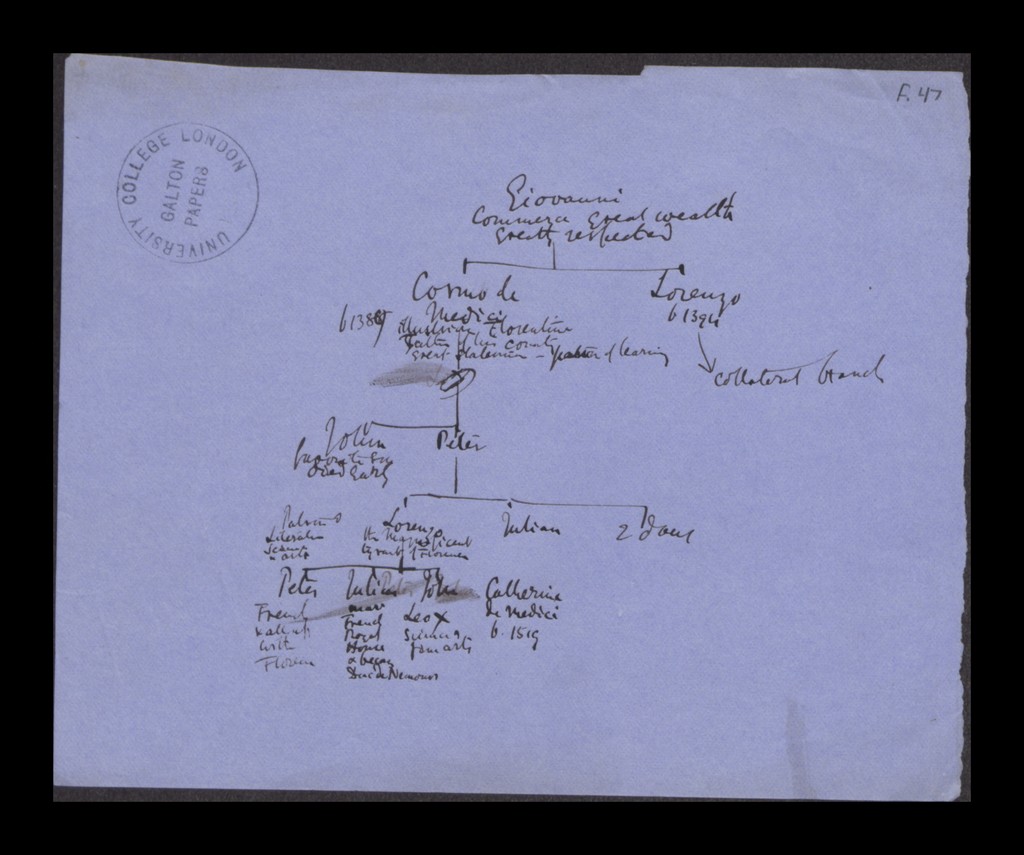 F. 47
UNIVERSITY COLLEGE LONDON
GALTON
PAPERS
Giovanni
Commerce great wealth
Greatly respected
Cosmo de
Medici
b 1389
illustrious Florentine
Father of his country
great statesman - patron of learning
Lorenzo
b 1394
collateral branch
John
favorite son
died early
Peter
Patron
Literature
Science
arts
Lorenzo
the Magnificent
tyrant of Florence
Julian
2 daus
Peter
French
with
Floren
Julian
marr
French
Royal
House
& began
Duc de Nemours
John
Leo X
Science
fine arts
Catherine
de Medici
b. 1519